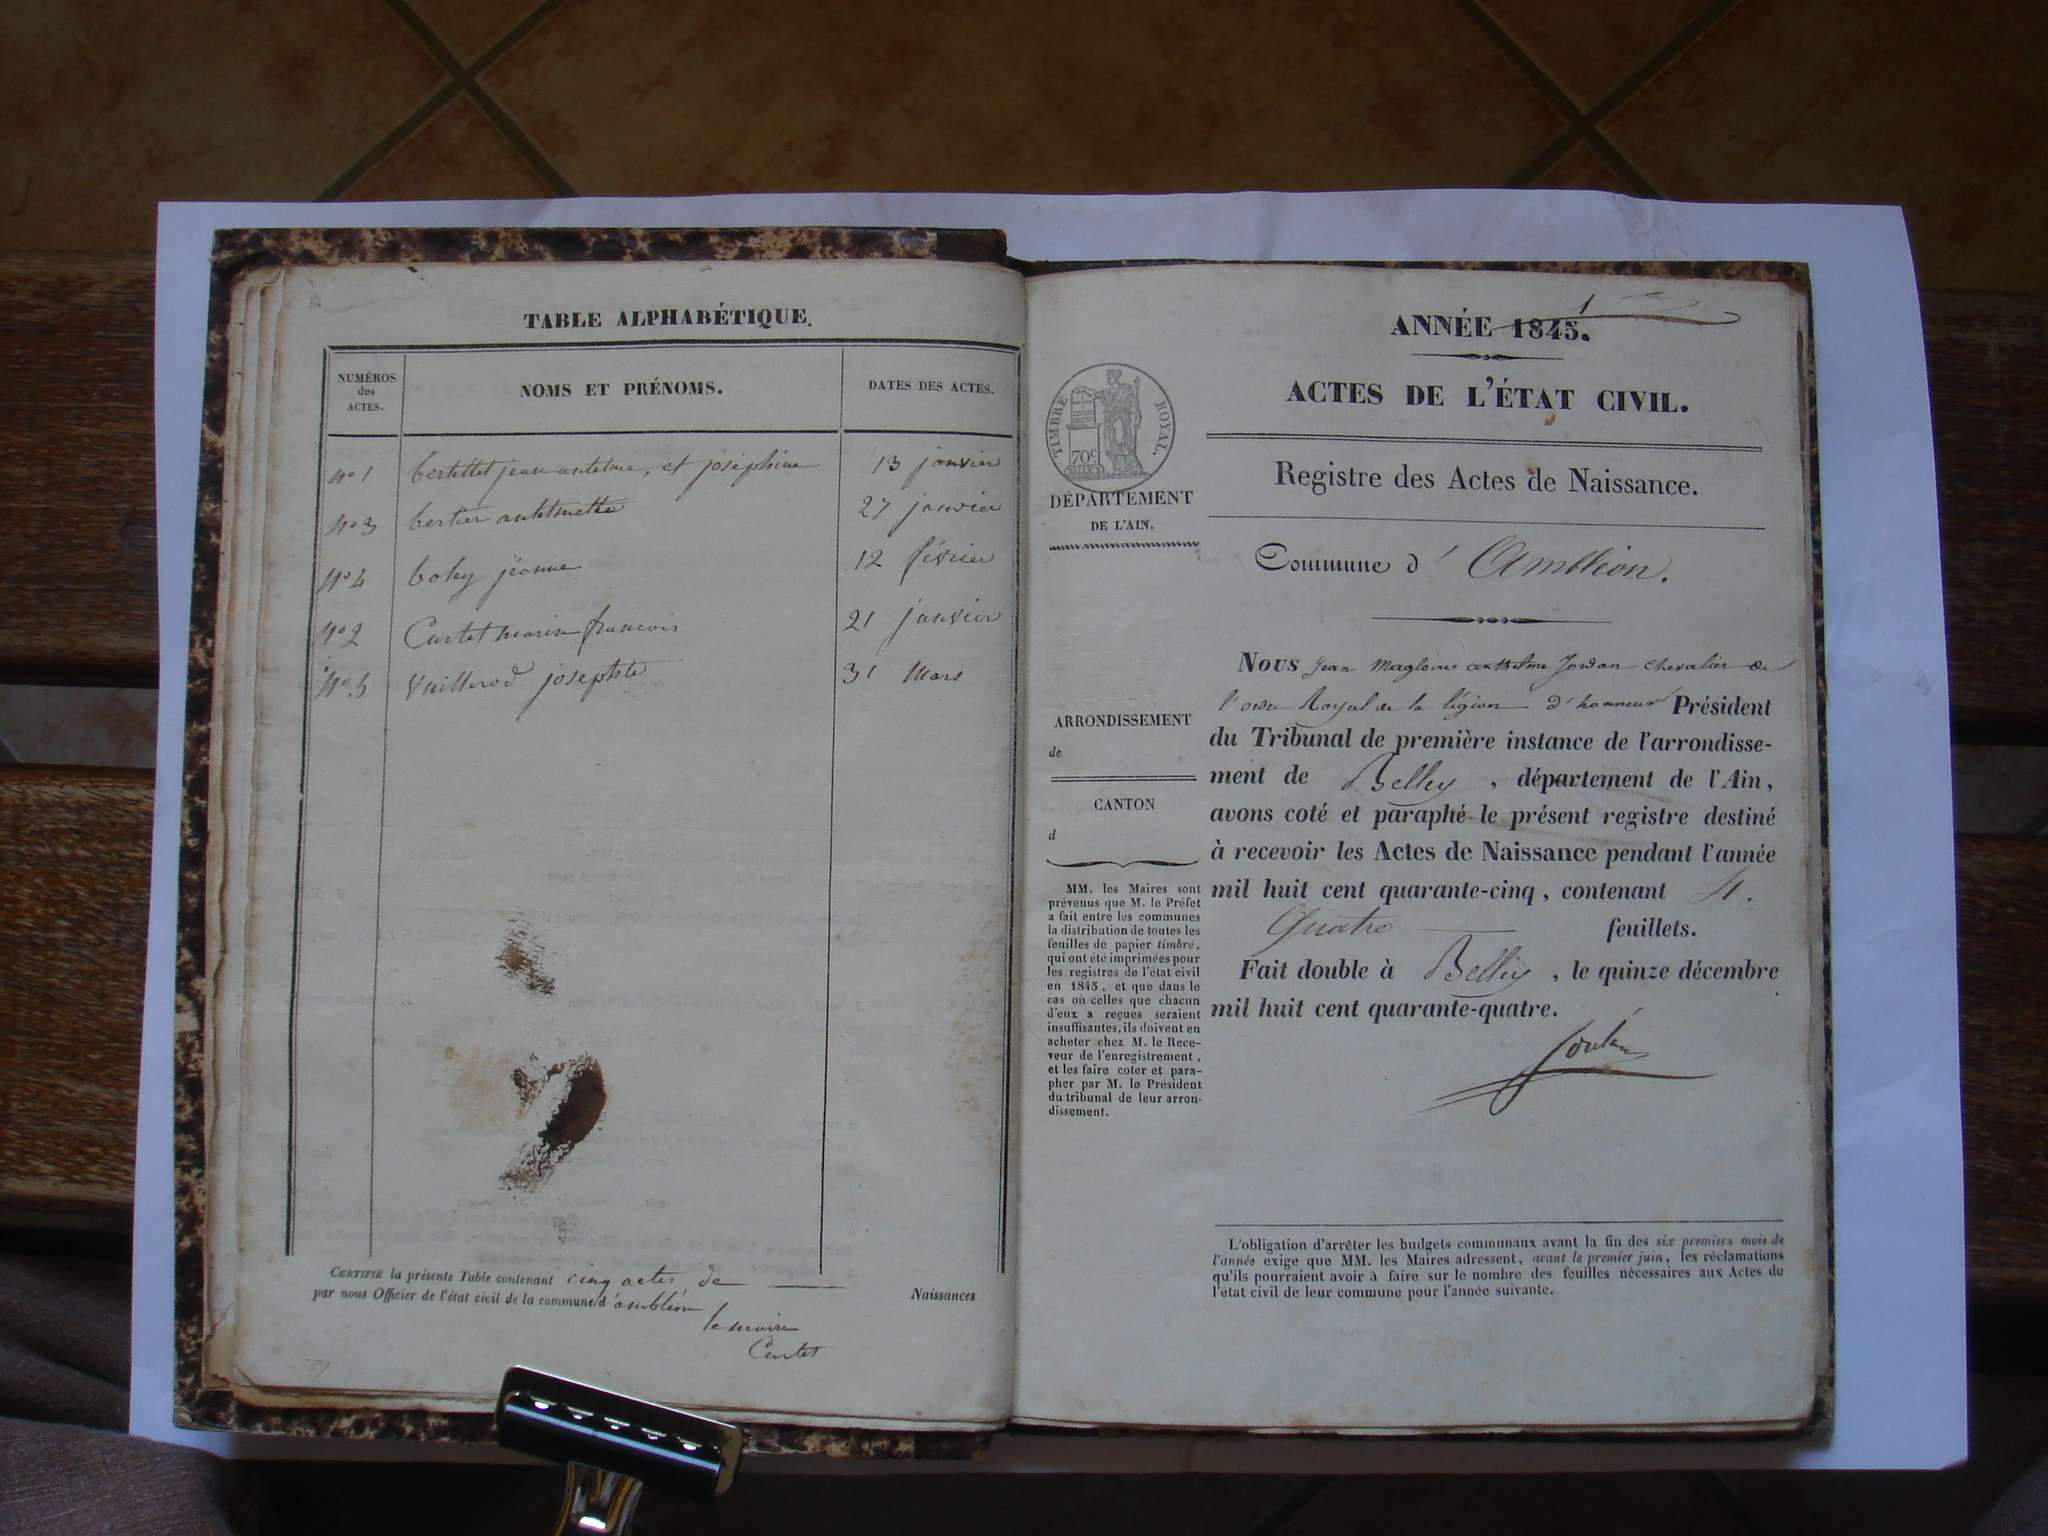 TABLE ALPHABÉTIQUE.
NUMÉROS
des
ACTES.
NOMS ET PRÉNOMS.
DATES DES ACTES.
No 1 bertettet jean antelme, et joséphine 13 janvier
No 3 bertier 27 janvier
No 4 boley jéanne 12 février
No 2 Cartet marin francois 21 janvier
No 5 Vuillerod josephte 31 Mars
CERTIFIÉ la présente Table contenant cinq actes de
Naissances
par nous Officier de l'état civil de la commune d'ambléon
le maire
Cartet
1
ANNÉE 1845.
ACTES DE L'ÉTAT CIVIL.
Registre des Actes de Naissance.
Commune d' Ambléon.
TIMBRE ROYAL.
70c
DÉPARTEMENT
DE L'AIN.
ARRONDISSEMENT
de
CANTON
d
MM. les Maires sont
prévenus que M. le Préfet
a fait entre les communes
la distribution de toutes les
feuilles de papier timbré,
qui ont été imprimées pour
les registres de l'état civil
en 1845, et que dans le
cas où celles que chacun
d'eux a reçues seraient
insuffisantes, ils doivent en
acheter chez M. le Rece-
veur de l'enregistrement,
et les faire coter et para-
pher par M. le Président
du tribunal de leur arron-
dissement.
NOUS Jean Magloire anthelme Jordan chevalier de
l'ordre Royal de la légion d'honneur Président
du Tribunal de première instance de l'arrondisse-
ment de Belley, département de l'Ain,
avons coté et paraphé le présent registre destiné
à recevoir les Actes de Naissance pendant l'année
mil huit cent quarante-cinq, contenant 4.
Quatre feuillets.
Fait double à Belley, le quinze décembre
mil huit cent quarante-quatre.
Jordan
L'obligation d'arrêter les budgets communaux avant la fin des six premiers mois de
l'année exige que MM. les Maires adressent, avant le premier juin, les réclamations
qu'ils pourraient avoir à faire sur le nombre des feuilles nécessaires aux Actes de
l'état civil de leur commune pour l'année suivante.